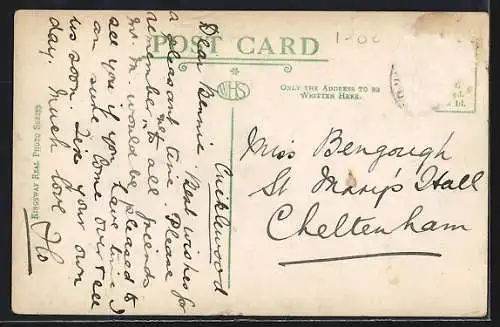 POST CARD
WHS
ONLY THE ADDRESS TO BE
WRITTEN HERE.
KINGSWAY REAL PHOTO SERIES
Cricklewood
Dear Bennie Best wishes for
a pleasant time. Please
remember to all friends
Mr. M. would be pleased to
see you if you have time I
am sure. Come over & see
us soon. Fix your own
day. Much love Flo
Miss Bengough
St Mary's Hall
Cheltenham